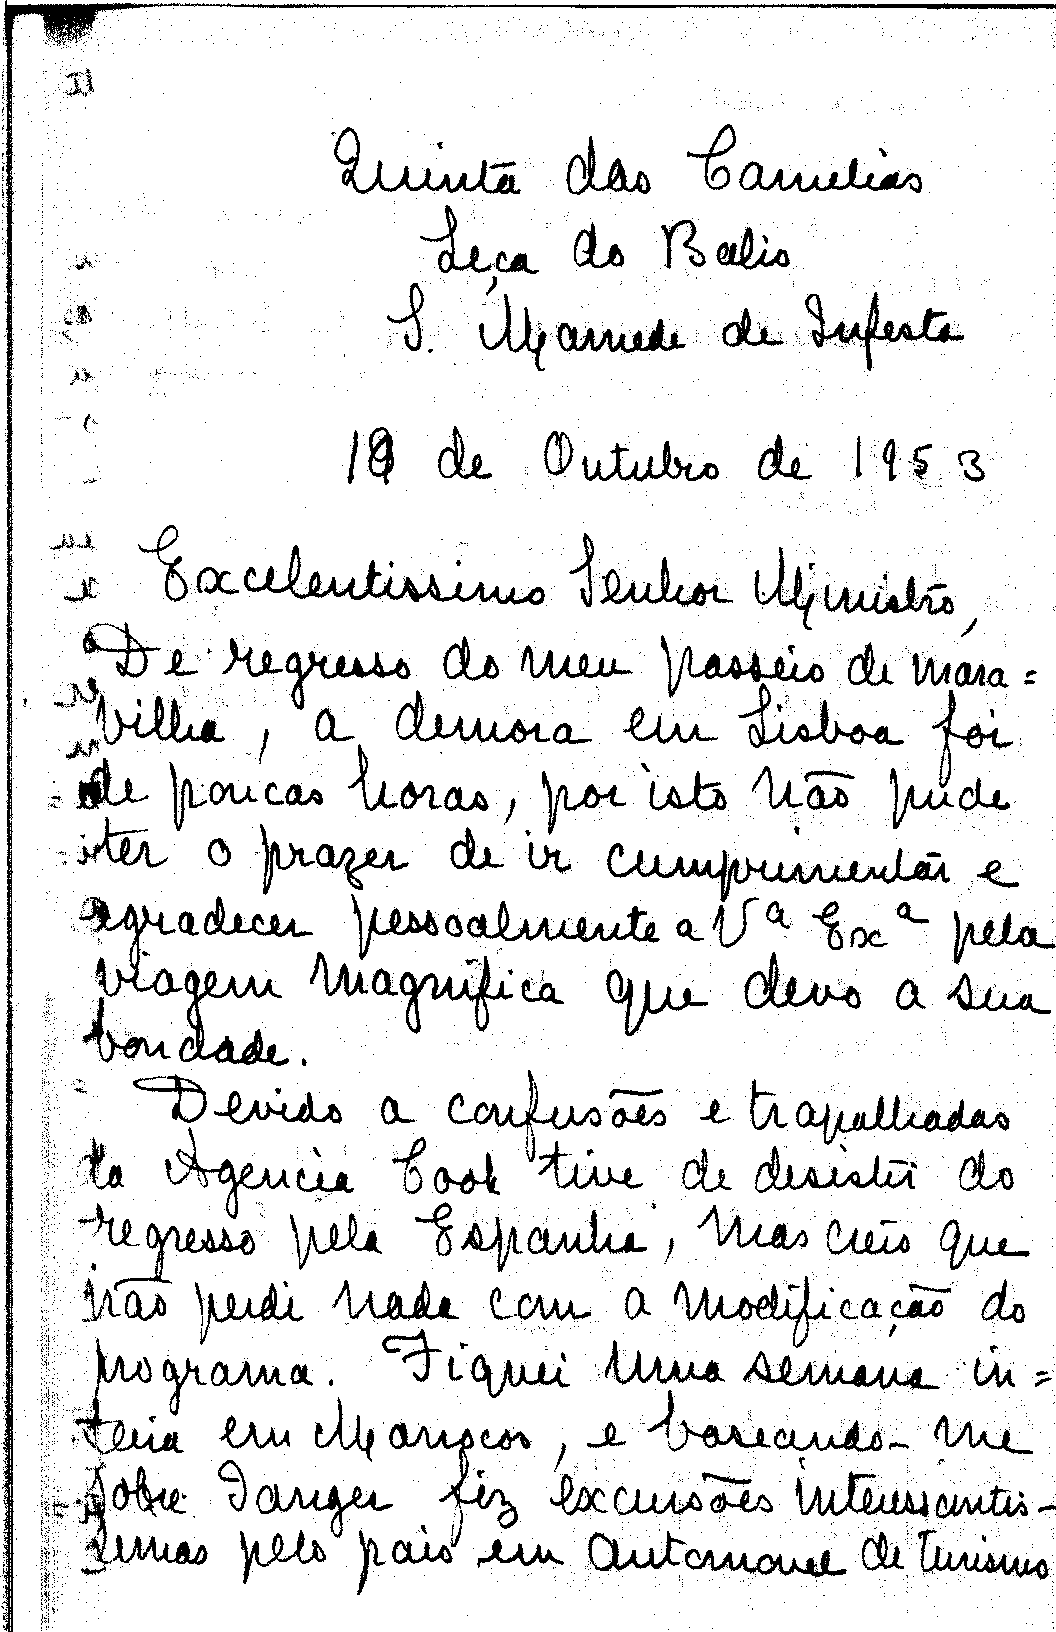 Quinta das Camelias
Leça do Balio
S. Mamede de Infesta
19 de Outubro de 1953
Excelentissimo Senhor Ministro,
De regresso do meu passeio de mara=
vilha, a demora em Lisboa foi
de poucas horas, por isto não pude
ter o prazer de ir cumprimentar e
agradecer pessoalmente a Vª Exª pela
viagem magnifica que devo a sua
bondade.
Devido a confusões e trapalhadas
da Agencia Cook tive de desistir do
regresso pela Espanha, mas creio que
não perdi nada com a modificação do
programa. Fiquei uma semana in=
teira em Marrocos, e baseando-me
sobre Tanger fiz excursões interessantis-
simas pelo pais em automovel de turismo